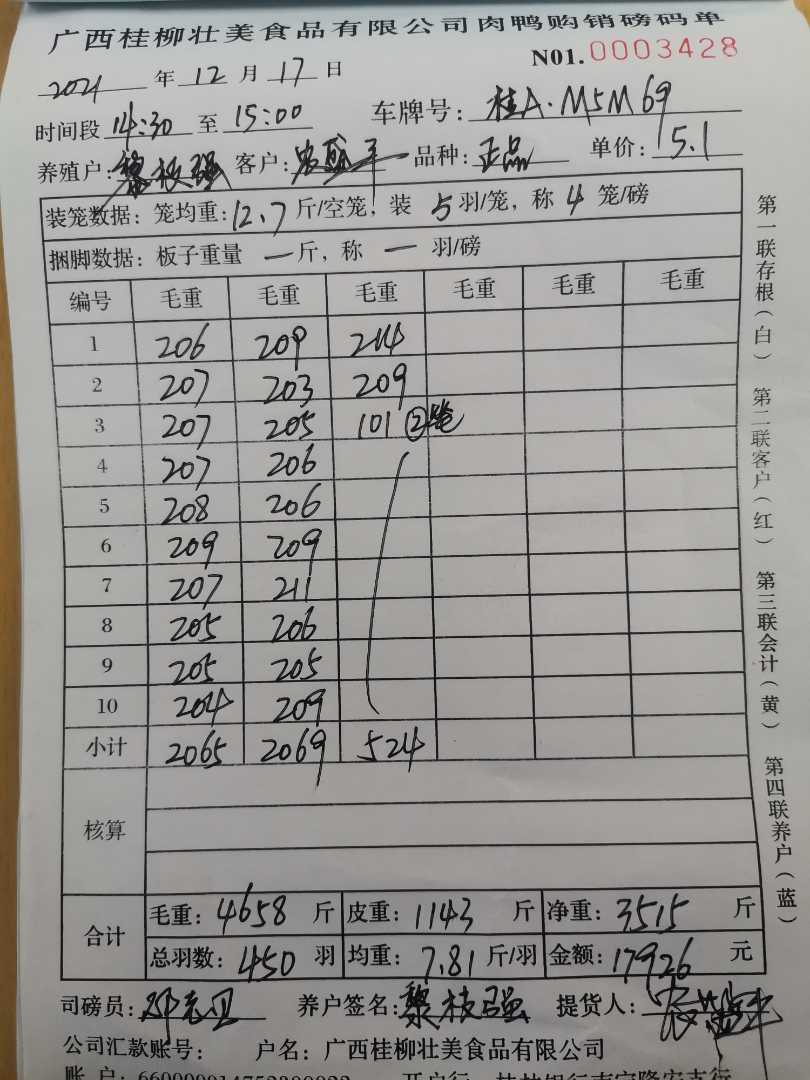 广西桂柳壮美食品有限公司肉鸭购销磅码单
N01.0003428
2021年12月17日
时间段14:30至15:00 车牌号:桂A·M5M69
养殖户:黎枝强 客户: 品种:正品 单价:5.1
装笼数据:笼均重:12.7斤/空笼,装5羽/笼,称4笼/磅
捆脚数据:板子重量一斤,称一羽/磅
编号 毛重 毛重 毛重 毛重 毛重 毛重
1 206 209 214
2 207 203 209
3 207 205 101 ②笼
4 207 206
5 208 206
6 209 209
7 207 211
8 205 206
9 205 205
10 204 209
小计 2065 2069 524
核算
合计 毛重:4658斤 皮重:1143斤 净重:3515斤
总羽数:450羽 均重:7.81斤/羽 金额:17926元
司磅员: 养户签名:黎枝强 提货人:
公司汇款账号: 户名:广西桂柳壮美食品有限公司
第一联存根(白) 第二联客户(红) 第三联会计(黄) 第四联养户(蓝)